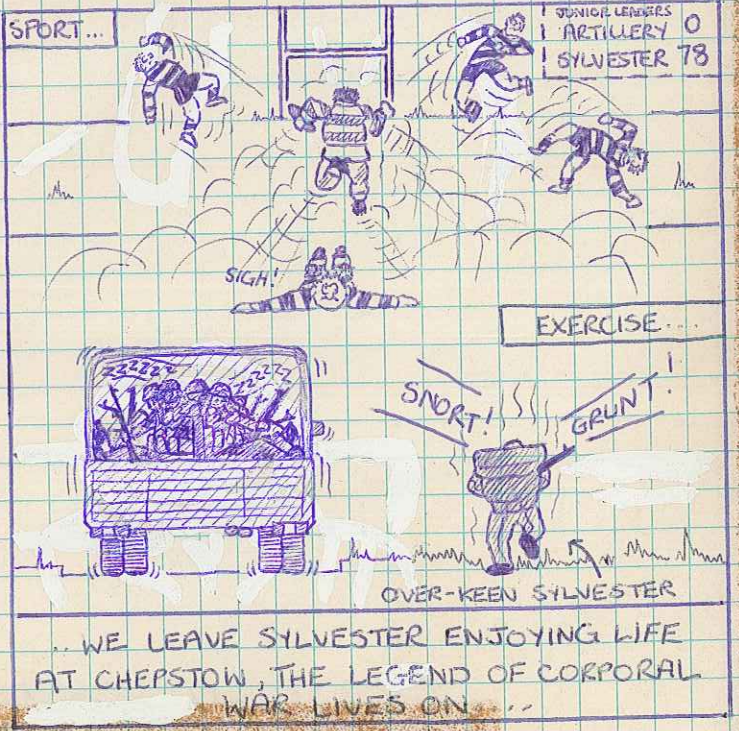 SPORT...
JUNIOR LEADERS
ARTILLERY 0
SYLVESTER 78
SIGH!
EXERCISE....
ZZZZZZ
ZZZZZ
SNORT!
GRUNT!
OVER-KEEN SYLVESTER
.. WE LEAVE SYLVESTER ENJOYING LIFE
AT CHEPSTOW, THE LEGEND OF CORPORAL
WAR LIVES ON ....